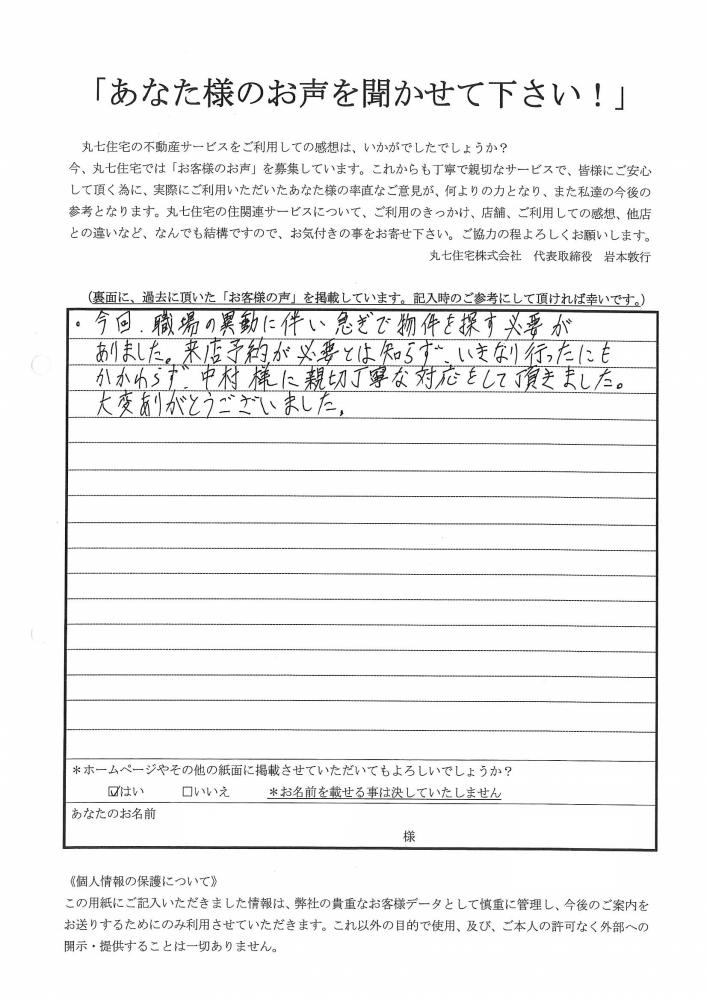 「あなた様のお声を聞かせて下さい！」
丸七住宅の不動産サービスをご利用しての感想は、いかがでしたでしょうか？
今、丸七住宅では「お客様のお声」を募集しています。これからも丁寧で親切なサービスで、皆様にご安心
して頂く為に、実際にご利用いただいたあなた様の率直なご意見が、何よりの力となり、また私達の今後の
参考となります。丸七住宅の住関連サービスについて、ご利用のきっかけ、店舗、ご利用しての感想、他店
との違いなど、なんでも結構ですので、お気付きの事をお寄せ下さい。ご協力の程よろしくお願いします。
丸七住宅株式会社　代表取締役　岩本敦行
（裏面に、過去に頂いた「お客様の声」を掲載しています。記入時のご参考にして頂ければ幸いです。）
・今回、職場の異動に伴い急ぎで物件を探す必要が
ありました。来店予約が必要とは知らず、いきなり行ったにも
かかわらず、中村様に親切丁寧な対応をして頂きました。
大変ありがとうございました。
＊ホームページやその他の紙面に掲載させていただいてもよろしいでしょうか？
☑はい　□いいえ　＊お名前を載せる事は決していたしません
あなたのお名前
様
《個人情報の保護について》
この用紙にご記入いただきました情報は、弊社の貴重なお客様データとして慎重に管理し、今後のご案内を
お送りするためにのみ利用させていただきます。これ以外の目的で使用、及び、ご本人の許可なく外部への
開示・提供することは一切ありません。